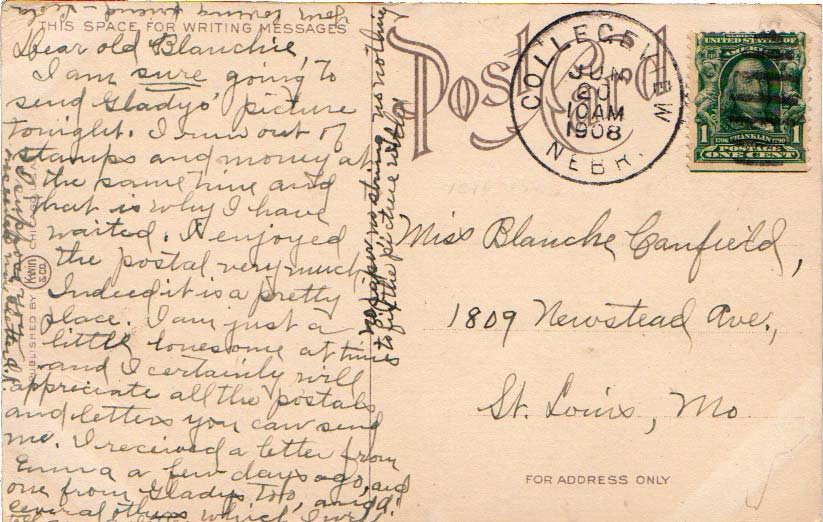 THIS SPACE FOR WRITING MESSAGES
Dear old Blanche,
I am sure going to
send Gladys' picture
tonight. I run out of
stamps and money at
the same time and
that is why I have
waited. I enjoyed
the postal very much
Indeed it is a pretty
place. I am just a
little lonesome at times
and I certainly will
appreciate all the postals
and letters you can send
me. I received a letter from
Emma a few days ago, and
one from Gladys too, and
several others which I
no paper no string no nothing
to fix the picture with
PUBLISHED BY KWIN & CO. CHICAGO
Post Card
COLLEGE VIEW
JUN
20
10 AM
1908
NEBR.
UNITED STATES OF
AMERICA
1 FRANKLIN 1
POSTAGE
ONE CENT
Miss Blanche Canfield,
1809 Newstead Ave.,
St. Louis, Mo
FOR ADDRESS ONLY